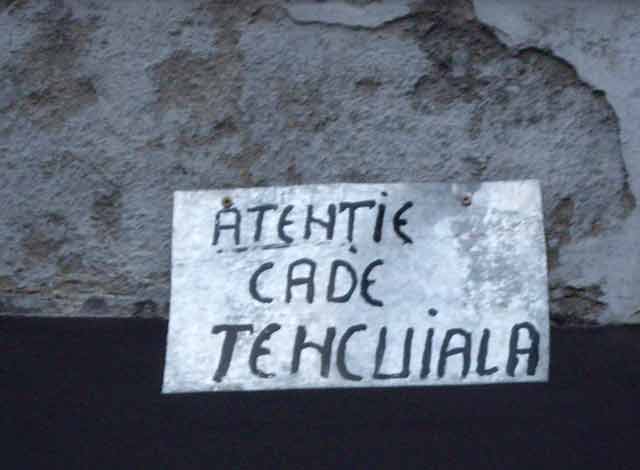 ATENȚIE
CADE
TENCUIALA